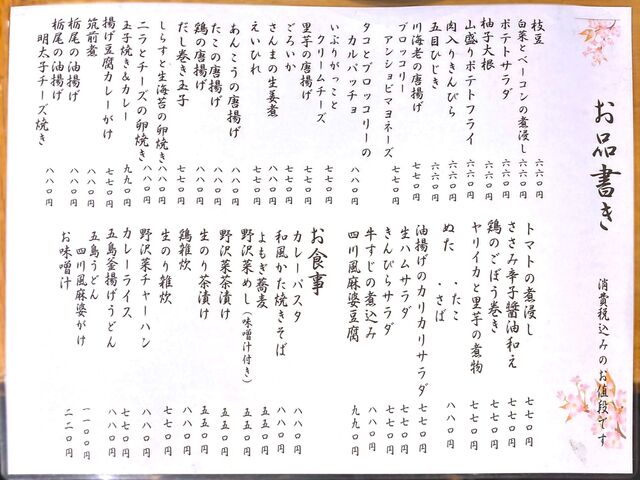 お品書き
消費税込みのお値段です
枝豆 六六〇円
白菜とベーコンの煮浸し 六六〇円
ポテトサラダ 六六〇円
柚子大根 六六〇円
山盛りポテトフライ 六六〇円
肉入りきんぴら 六六〇円
五目ひじき 六六〇円
川海老の唐揚げ 七七〇円
ブロッコリー
アンショビマヨネーズ 七七〇円
タコとブロッコリーの
カルパッチョ 八八〇円
いぶりがっこと
クリームチーズ 七七〇円
里芋の唐揚げ 七七〇円
ごろいか 七七〇円
さんまの生姜煮 七七〇円
えいひれ 七七〇円
あんこうの唐揚げ 八八〇円
たこの唐揚げ 八八〇円
鶏の唐揚げ 八八〇円
だし巻き玉子 七七〇円
しらすと生海苔の卵焼き 八八〇円
ニラとチーズの卵焼き 八八〇円
玉子焼き&カレー 九九〇円
揚げ豆腐カレーがけ 七七〇円
筑前煮 八八〇円
栃尾の油揚げ 八八〇円
栃尾の油揚げ
明太子チーズ焼き 八八〇円
トマトの煮浸し 七七〇円
ささみ辛子醤油和え 七七〇円
鶏のごぼう巻き 七七〇円
ヤリイカと里芋の煮物 七七〇円
ぬた ・たこ
・さば 八八〇円
油揚げのカリカリサラダ 七七〇円
生ハムサラダ 七七〇円
きんぴらサラダ 七七〇円
牛すじの煮込み 八八〇円
四川風麻婆豆腐 九九〇円
お食事
カレーパスタ 八八〇円
和風かた焼きそば 八八〇円
よもぎ蕎麦 五五〇円
野沢菜めし(味噌汁付き) 五五〇円
野沢菜茶漬け 五五〇円
生のり茶漬け 五五〇円
鶏雑炊 八八〇円
生のり雑炊 七七〇円
野沢菜チャーハン 八八〇円
カレーライス 七七〇円
五島釜揚げうどん 八八〇円
五島うどん
四川風麻婆がけ 一一〇〇円
お味噌汁 二二〇円